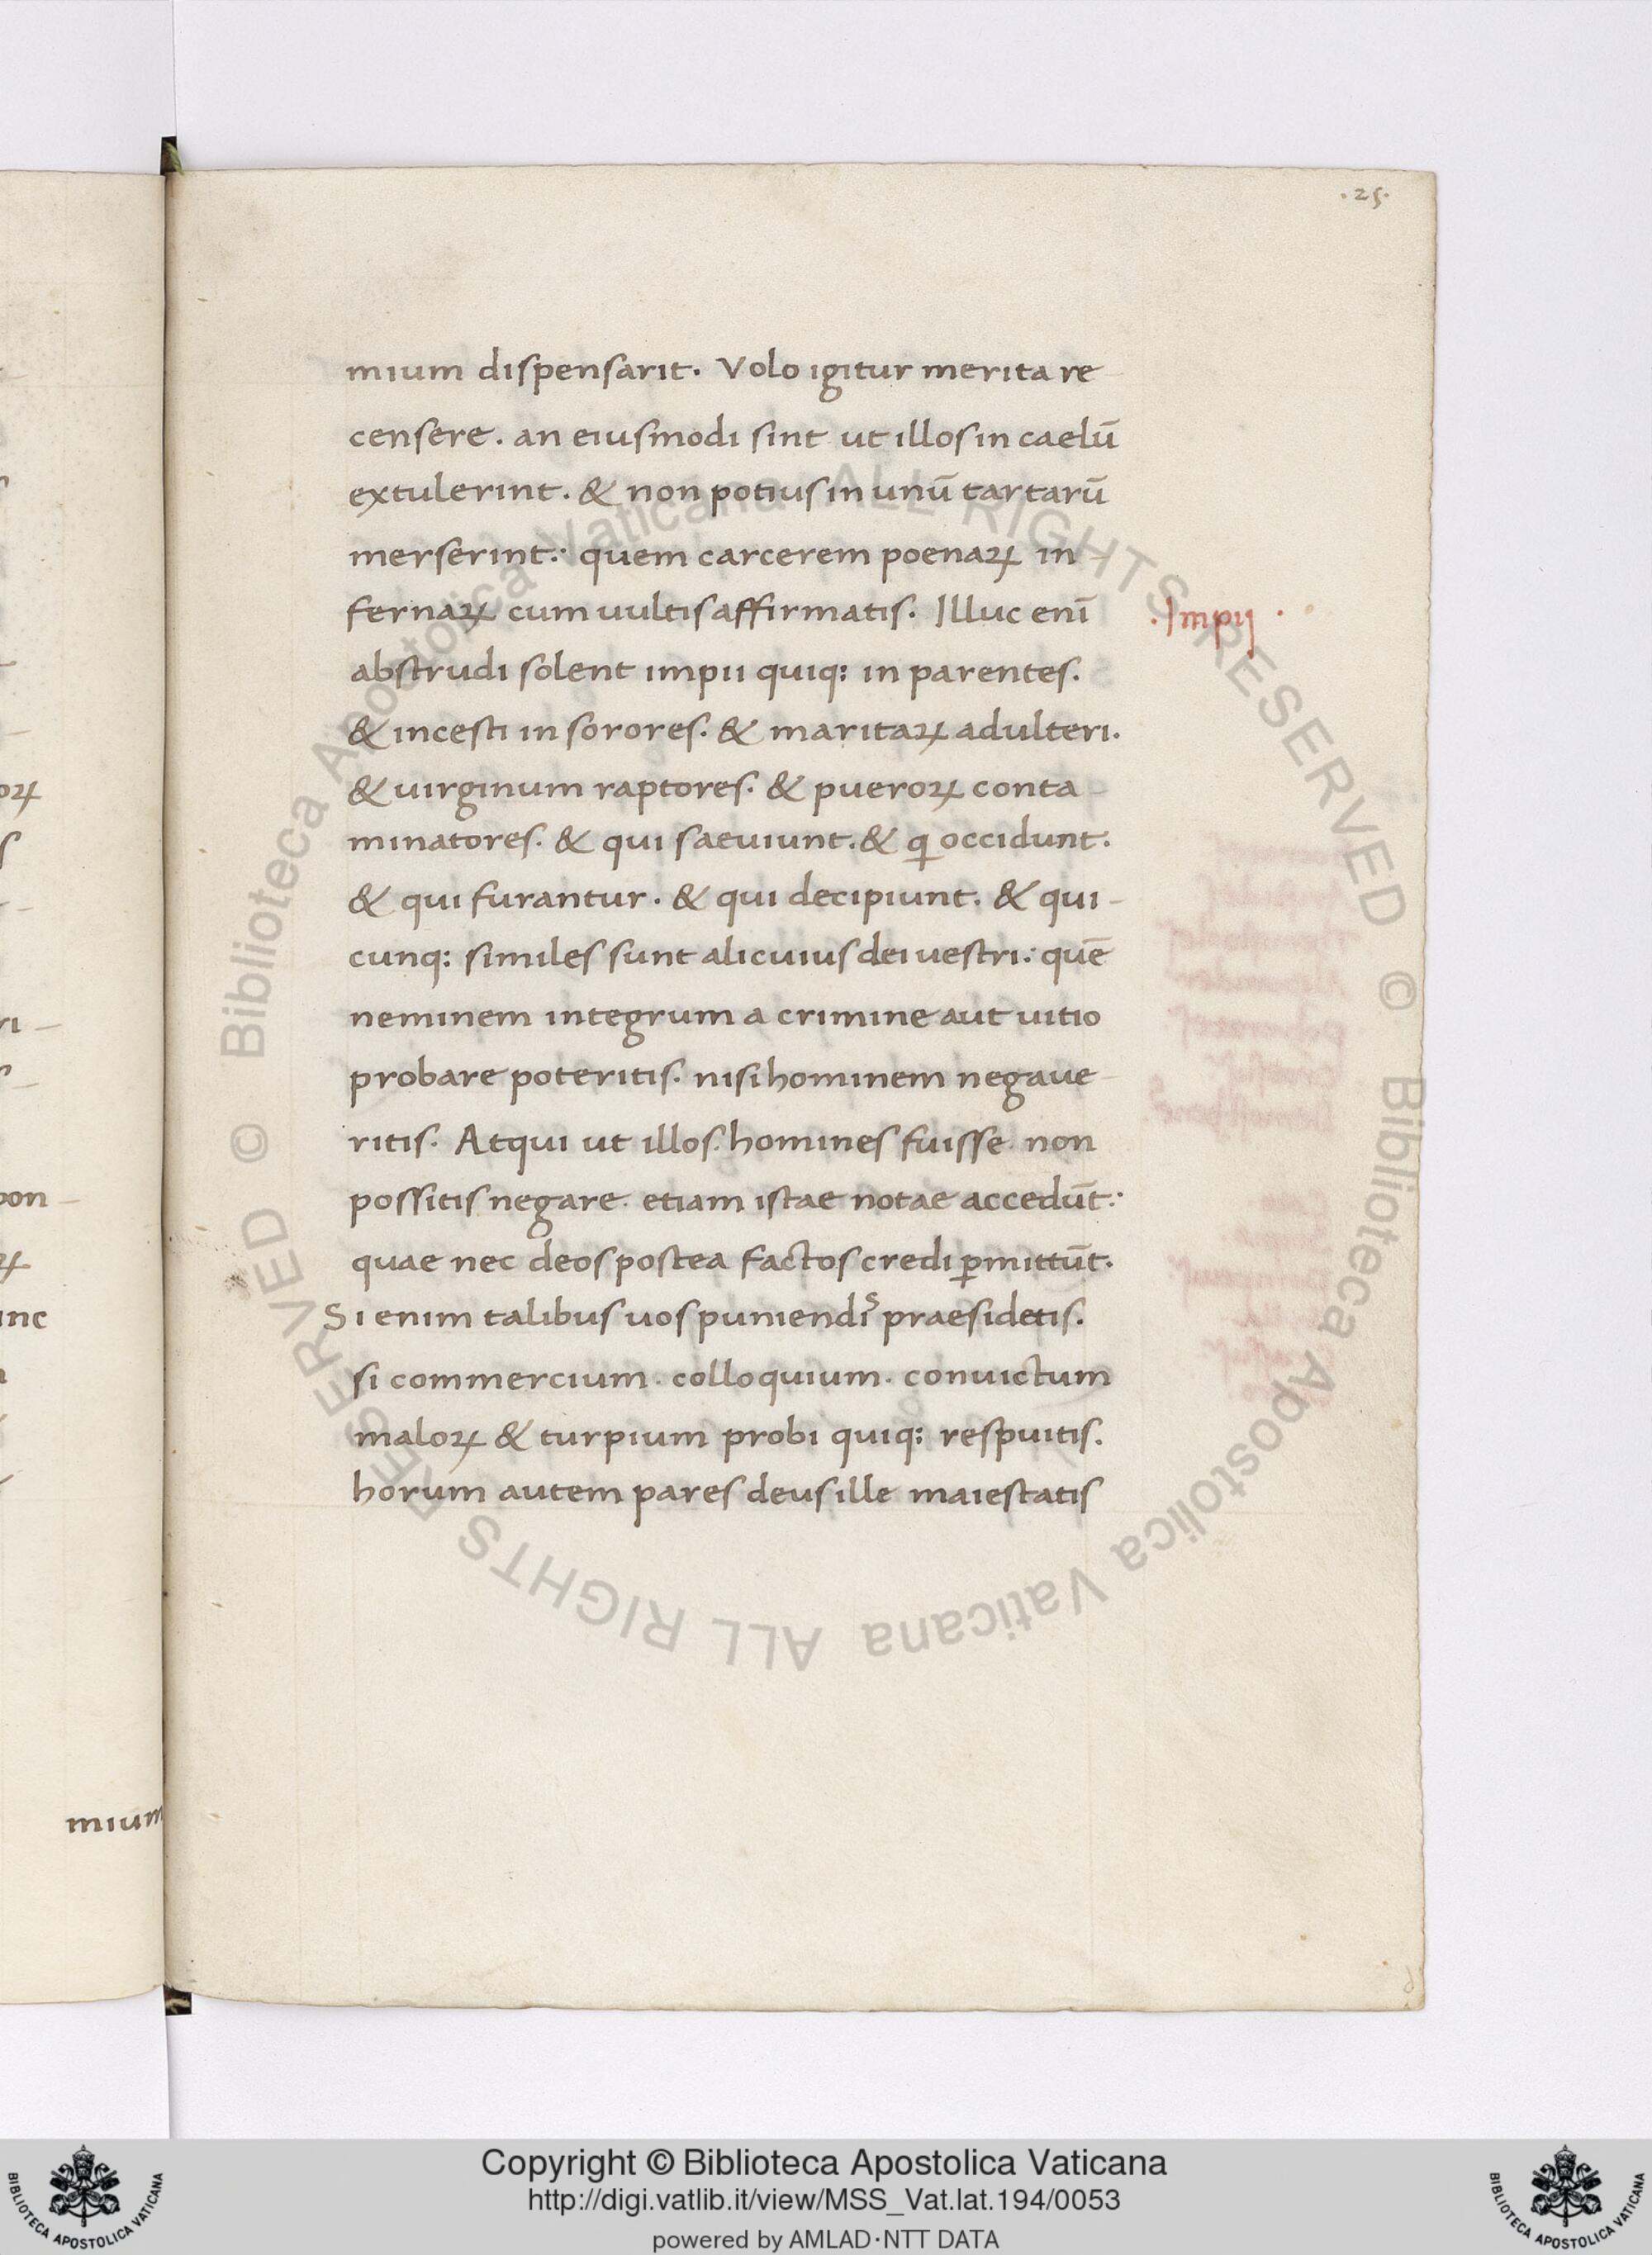 .25.
mium dispensarit. Volo igitur merita re
censere. an eiusmodi sint ut illos in caelū
extulerint. & non potius in unū tartarū
merserint: quem carcerem poenaꝝ in
fernaꝝ cum uultis affirmatis. Illuc enī
.Impij.
abstrudi solent impii quiq: in parentes.
& incesti in sorores. & maritaꝝ adulteri.
& uirginum raptores. & pueroꝝ conta
minatores. & qui saeuiunt. & q̄ occidunt.
& qui furantur. & qui decipiunt. & qui-
cunq: similes sunt alicuius dei uestri: quē
neminem integrum a crimine aut uitio
probare poteritis. nisi hominem negaue
ritis. Atqui ut illos. homines fuisse. non
possitis negare. etiam istae notae accedūt:
quae nec deos postea factos credi ꝑmittūt.
Si enim talibus uos puniendis praesidetis.
si commercium. colloquium. conuictum
maloꝝ & turpium probi quiq: respuitis.
horum autem pares deus ille maiestatis
oꝝ
ri-
pon-
inc
mium
Copyright © Biblioteca Apostolica Vaticana
http://digi.vatlib.it/view/MSS_Vat.lat.194/0053
powered by AMLAD·NTT DATA
BIBLIOTECA APOSTOLICA VATICANA
BIBLIOTECA APOSTOLICA VATICANA
© Biblioteca Apostolica Vaticana ALL RIGHTS RESERVED
© Biblioteca Apostolica Vaticana ALL RIGHTS RESERVED